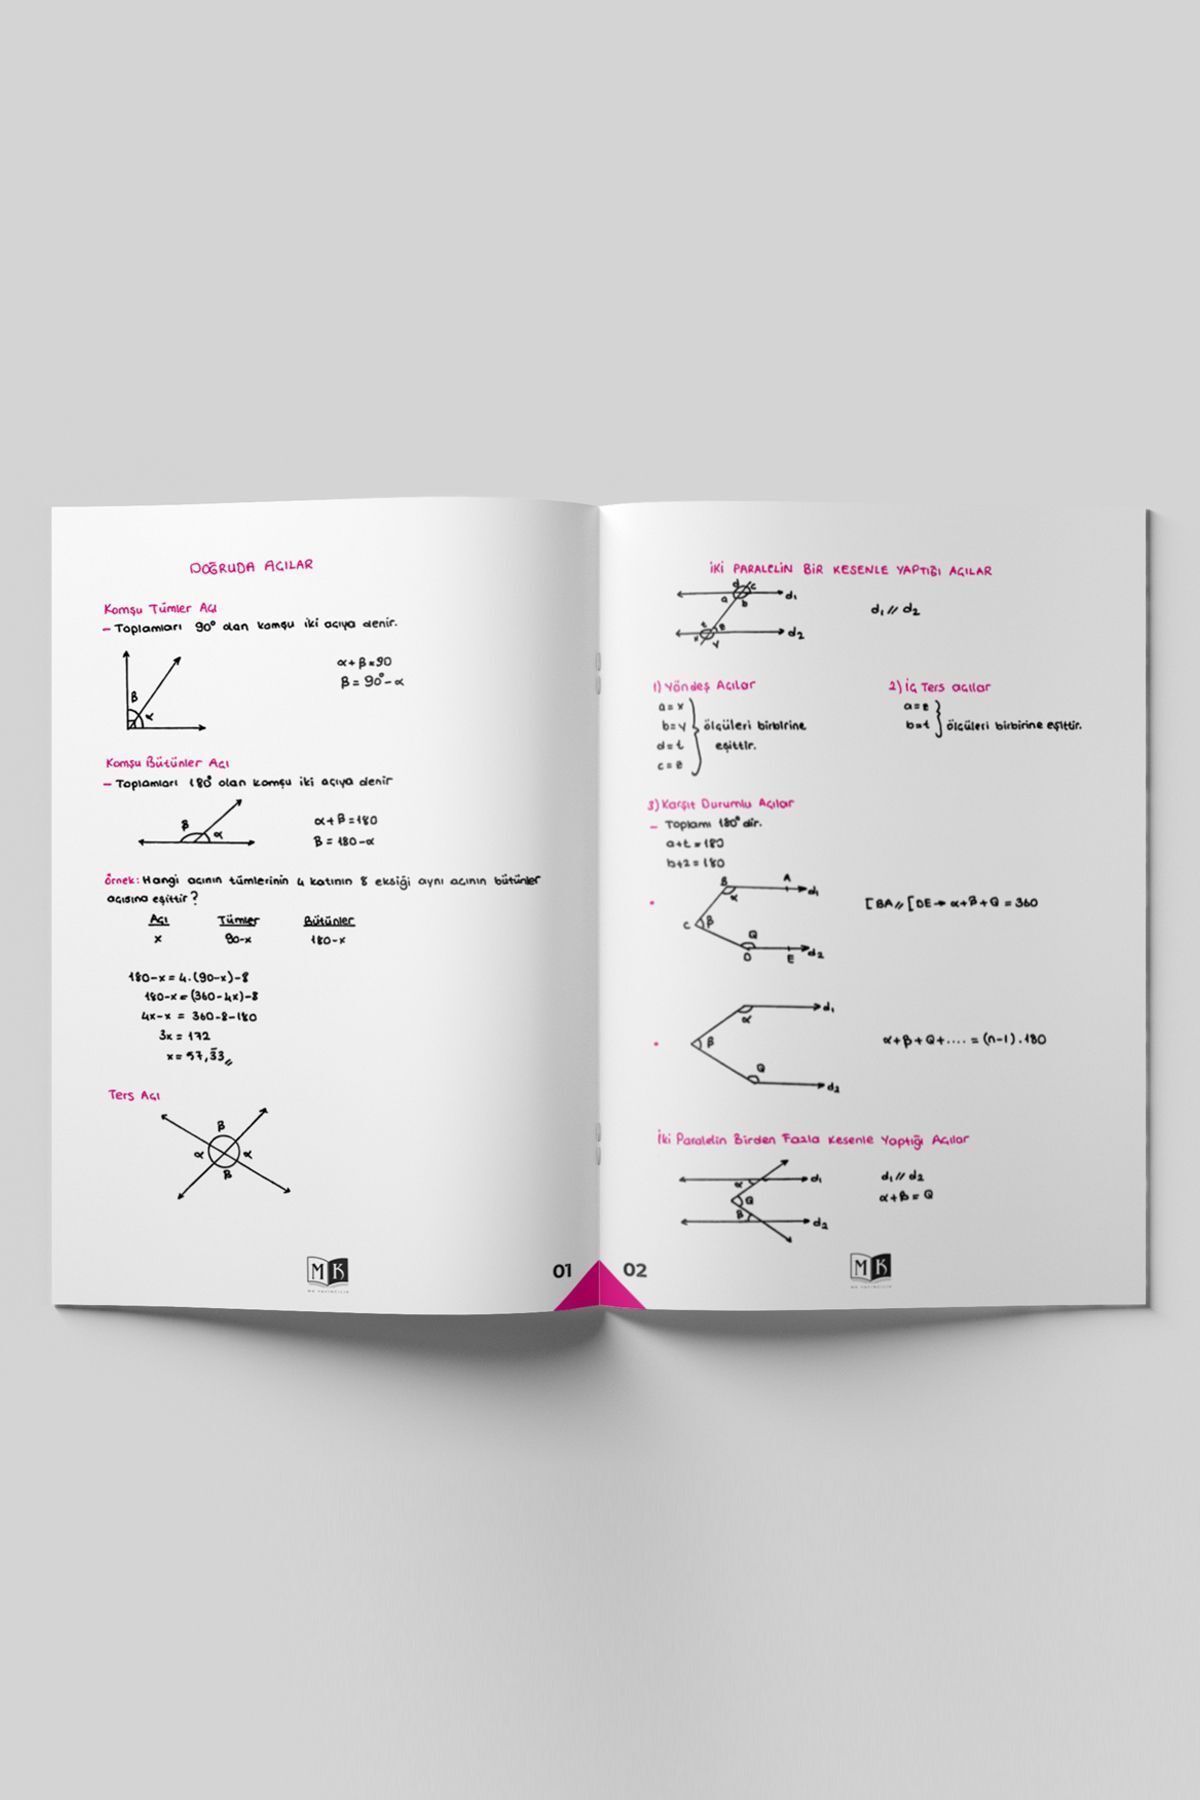 DOĞRUDA AÇILAR
Komşu Tümler Açı
- Toplamları 90° olan komşu iki açıya denir.
β
α
α+β=90
β = 90°-α
Komşu Bütünler Açı
- Toplamları 180° olan komşu iki açıya denir
β
α
α+β=180
β = 180-α
örnek: Hangi açının tümlerinin 4 katının 8 eksiği aynı açının bütünler
açısına eşittir?
Açı Tümler Bütünler
x 90-x 180-x
180-x = 4.(90-x)-8
180-x = (360-4x)-8
4x-x = 360-8-180
3x = 172
x = 57,33
Ters Açı
β
α α
β
MK
MK YAYINCILIK
01
İKİ PARALELİN BİR KESENLE YAPTIĞI AÇILAR
d c
a b
d1
t z
x y
d2
d1 // d2
1) Yöndeş Açılar
a=x
b=y
d=t
c=z
ölçüleri birbirine
eşittir.
2) İç Ters açılar
a=z
b=t
ölçüleri birbirine eşittir.
3) Karşıt Durumlu Açılar
- Toplamı 180° dir.
a+t=180
b+z=180
B A d1
α
C β
Q
D E d2
[BA // [DE → α+β+Q = 360
d1
α
β
Q
d2
α+β+Q+.... = (n-1).180
İki Paralelin Birden Fazla Kesenle Yaptığı Açılar
α d1
Q
β d2
d1 // d2
α+β = Q
MK
MK YAYINCILIK
02